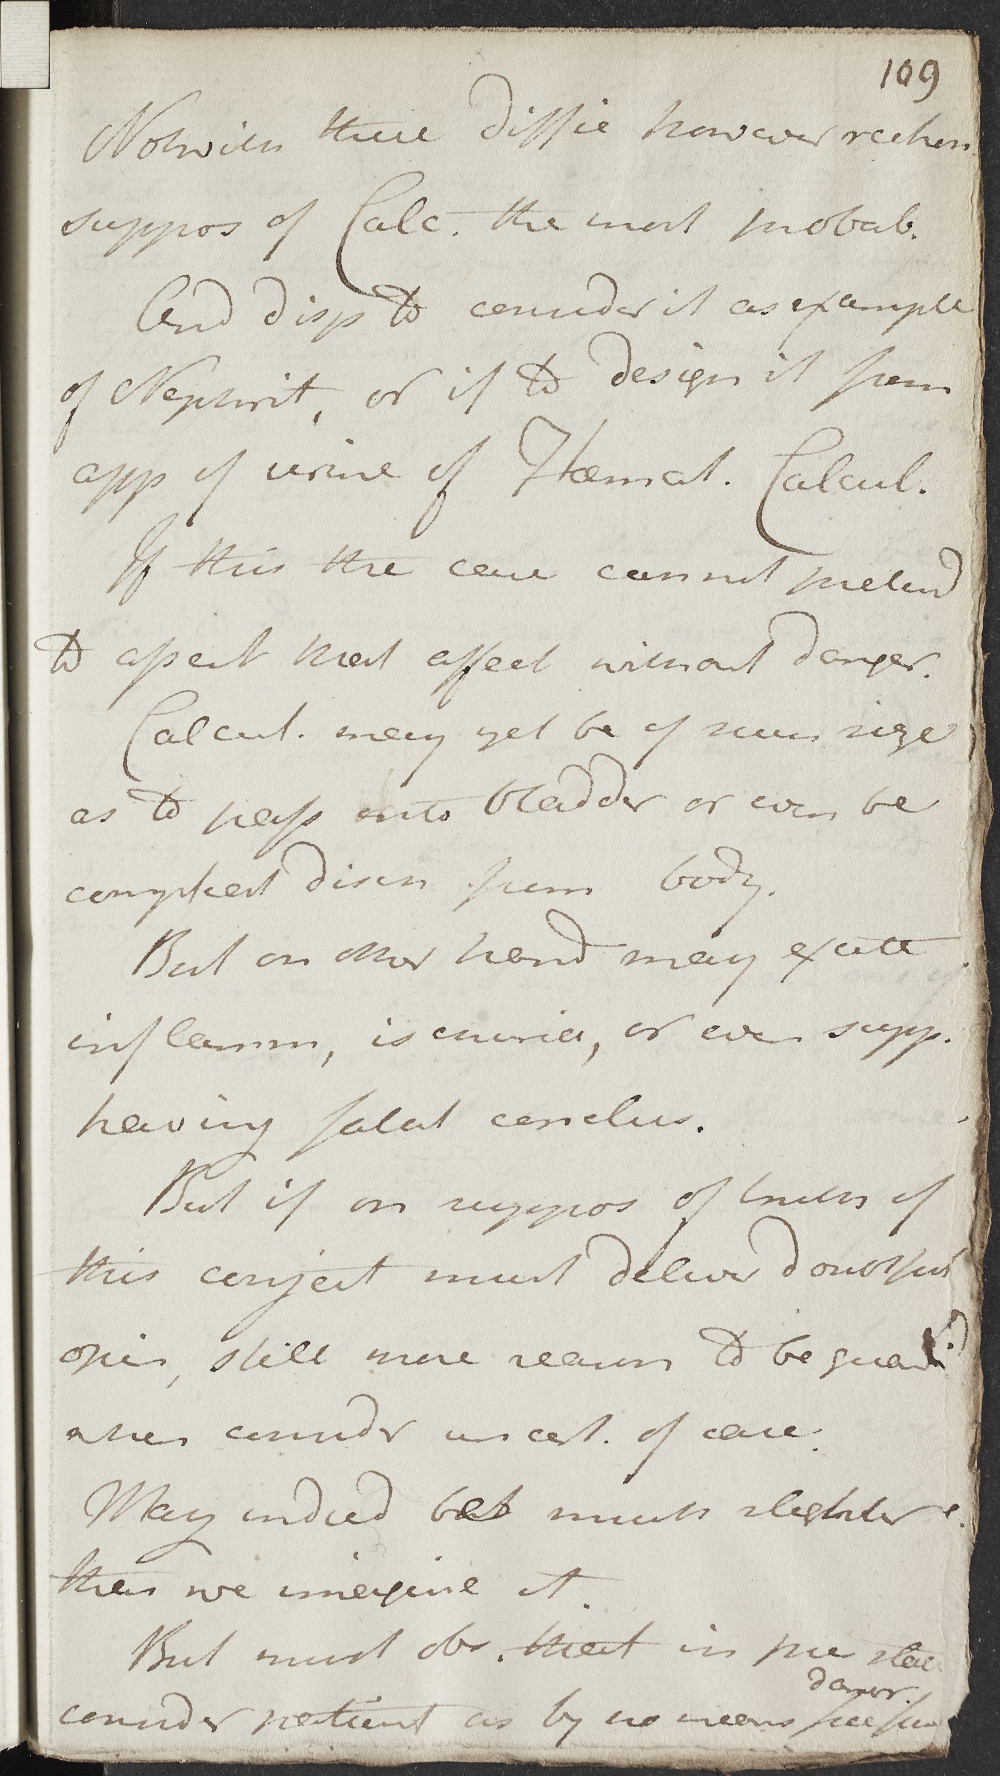 109
Notwith these diffic however reckon
suppos of Calc. the most probab.
And disp to consider it as example
of Nephrit, or if to design it from
app of urine of Hæmat. Calcul.
If this the case cannot pretend
to assert that affect without danger.
Calcul. may yet be of such size
as to pass into bladder or even be
compleat disch from body.
But on other hand may excite
inflamm, ischuria, or even supp.
having fatal conclus.
But if on suppos of truth of
this conject must deliver doubtful
opin, still more reason to be guard
when consider uncert. of case.
May indeed be much slighter
than we imagine it.
But must obs. that in pre state
consider patient as by no means free from
danger.